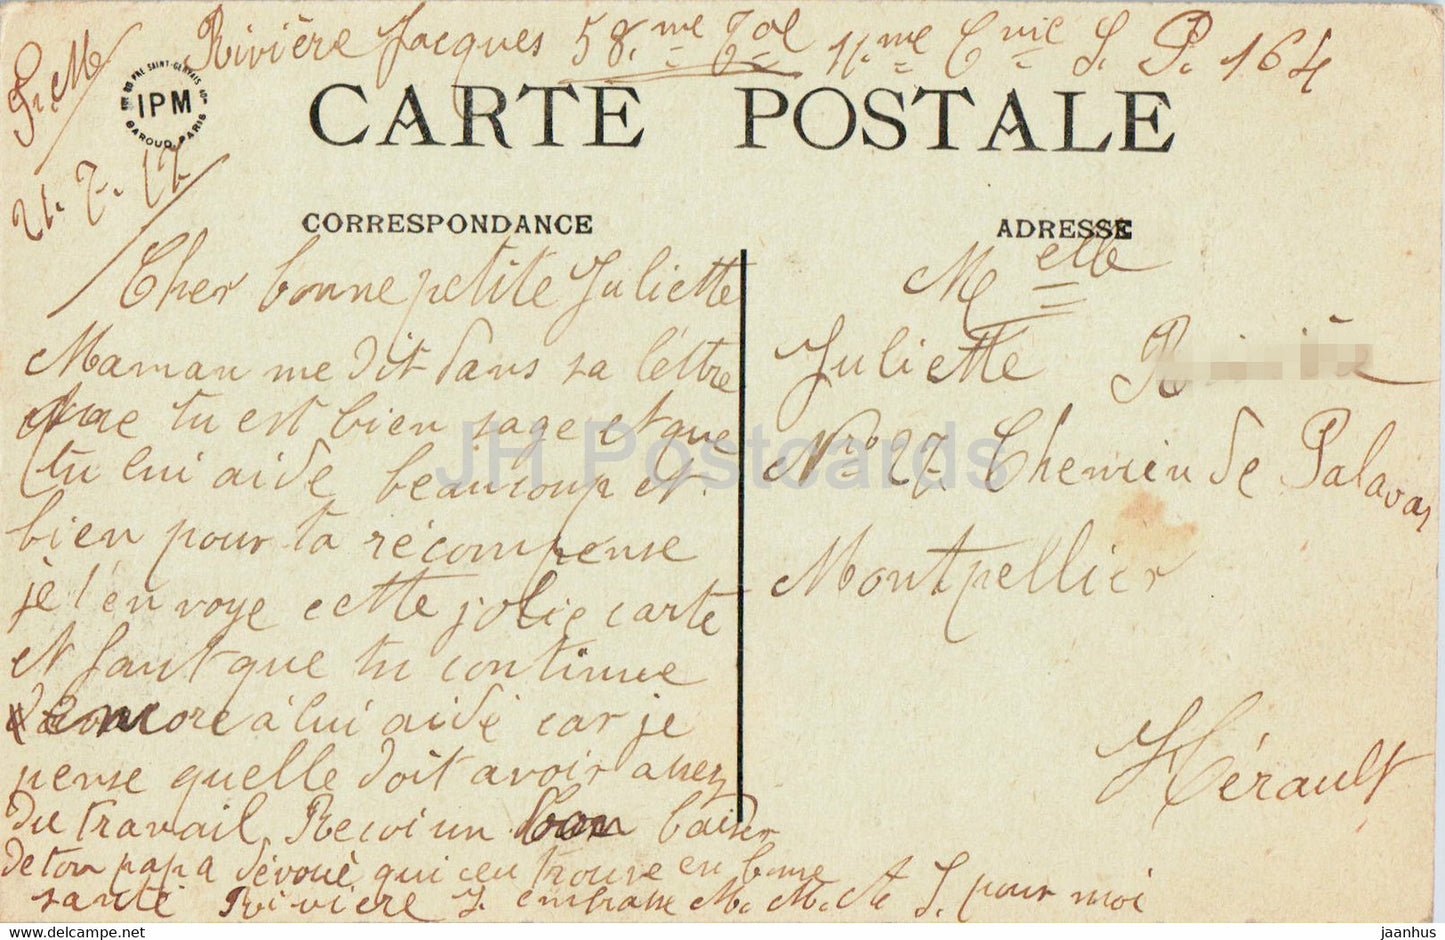 Rivière Jacques 58.me Col 11.me Cnie S. P. 164
F. M
IPM
BAROUD PARIS
CARTE POSTALE
21. 7. 17
CORRESPONDANCE
ADRESSE
Cher bonne petite Juliette
Maman me dit dans sa léttre
que tu est bien sage et que
tu lui aide beaucoup et
bien pour ta récompense
je t'envoye cette jolie carte
et faut que tu continue
encore à lui aidé car je
pense quelle doit avoir assez
du travail, Recoi un bon baiser
de ton papa dévoué qui ceu trouve en bone
santé Rivière J. embrasse M. M. et J. pour moi
Melle
Juliette
Nro 27. Chemin de Palavas
Montpellier
Hérault
JH Postcards
www.hippostcard.com
jaanhus